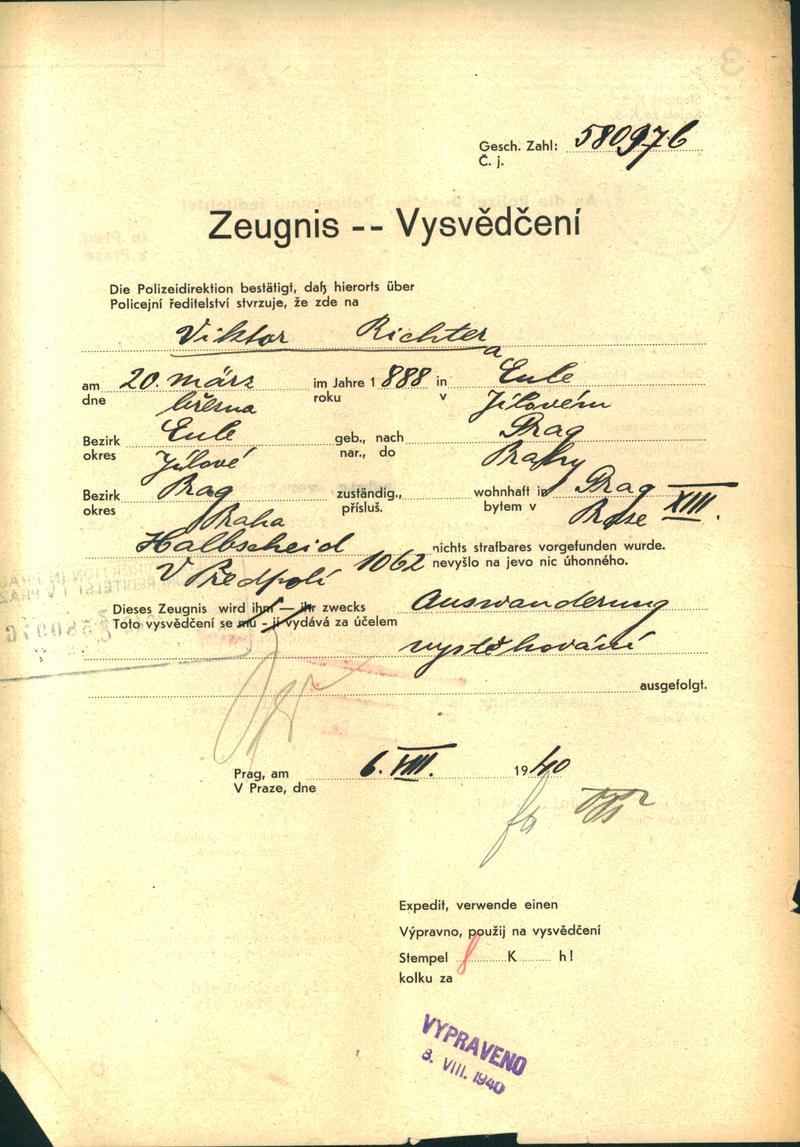 Gesch. Zahl: 580976
Č. j.
Zeugnis -- Vysvědčení
Die Polizeidirektion bestätigt, daß hierorts über
Policejní ředitelství stvrzuje, že zde na
Viktor Richter
am 20. märz im Jahre 1888 in Eule
dne března roku v Jílovém
Bezirk Eule geb., nach Prag
okres Jílové nar., do Prahy
Bezirk Prag zuständig., wohnhaft in Prag XIII.
okres Praha přísluš. bytem v
Halbscheid nichts strafbares vorgefunden wurde.
V Předpolí 1062 nevyšlo na jevo nic úhonného.
Dieses Zeugnis wird ihm — ihr zwecks Auswanderung
Toto vysvědčení se mu - jí vydává za účelem
vystěhování
ausgefolgt.
Prag, am 6. VIII. 1940
V Praze, dne
Expedit, verwende einen
Výpravno, použij na vysvědčení
Stempel K h!
kolku za
VYPRAVENO
8. VIII. 1940